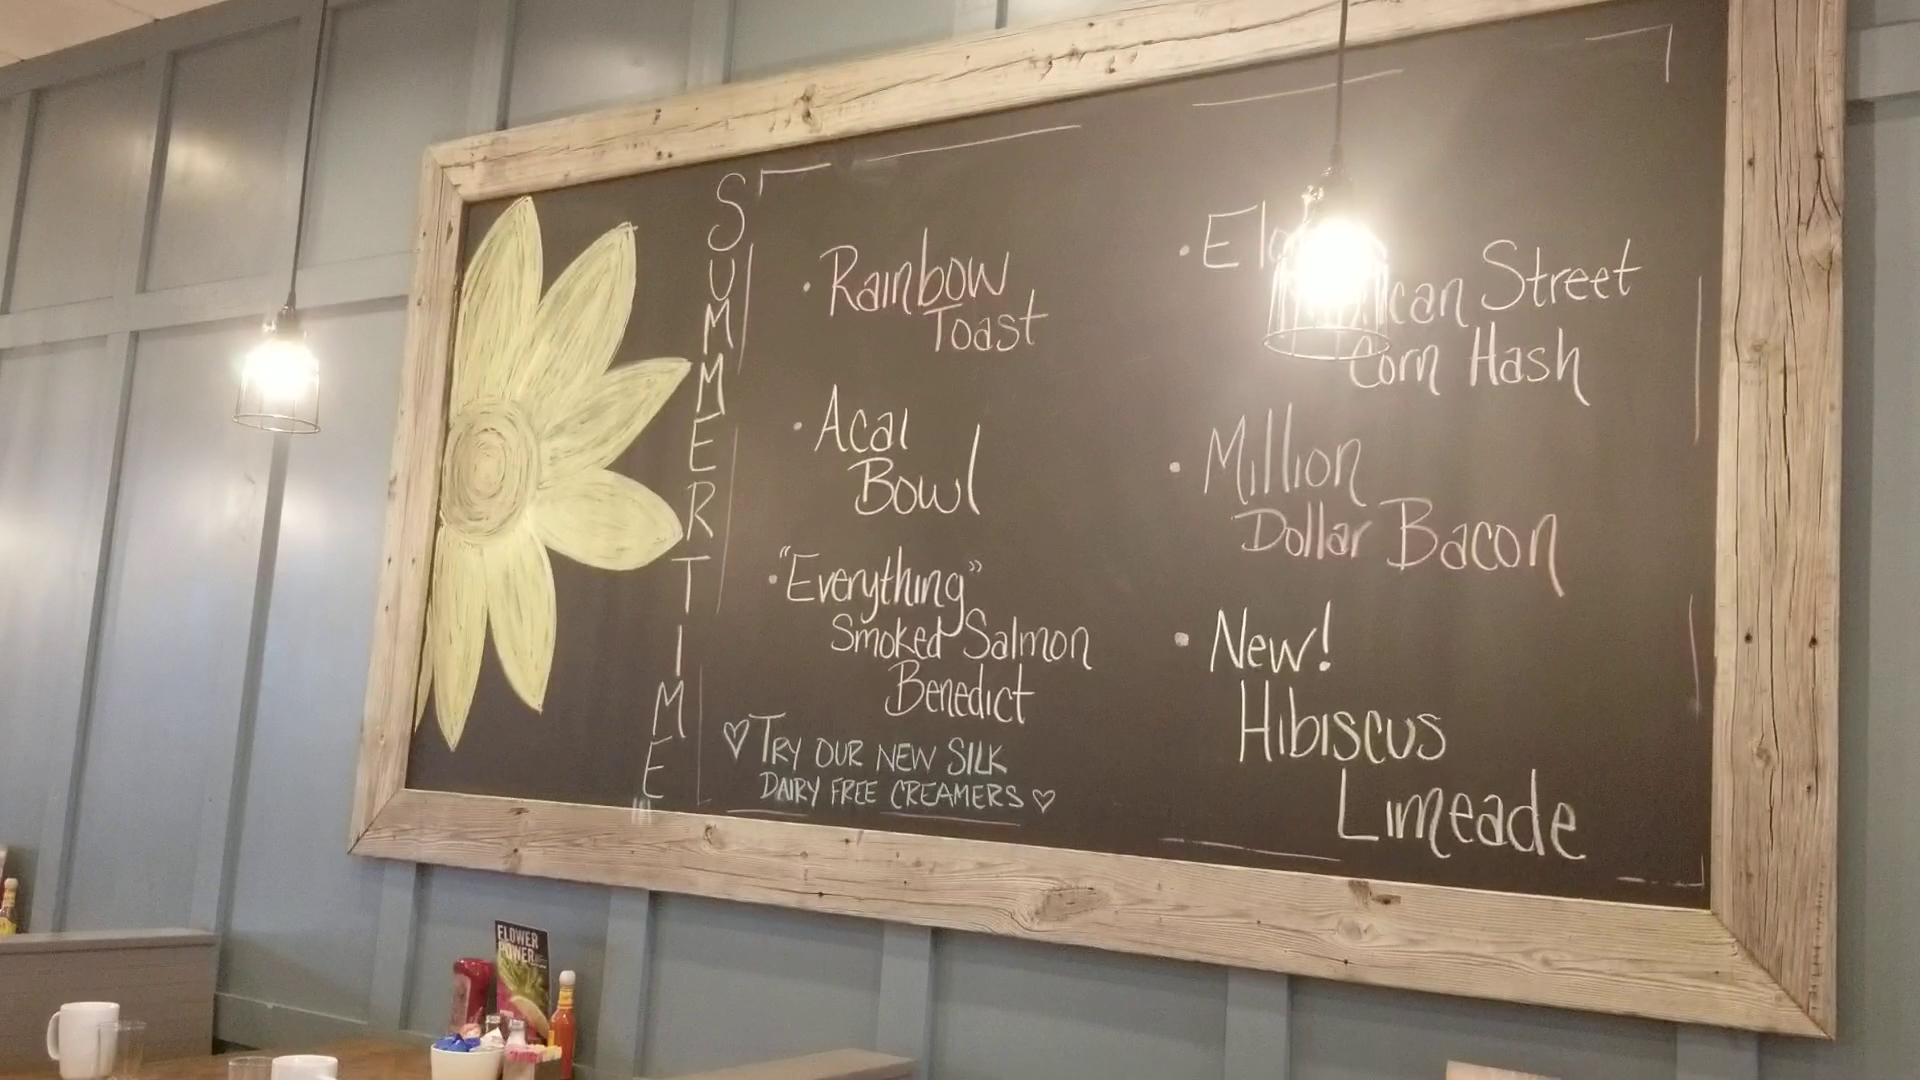 SUMMERTIME
· Rainbow
Toast
· Acai
Bowl
· "Everything"
Smoked Salmon
Benedict
♡ TRY OUR NEW SILK
DAIRY FREE CREAMERS ♡
Street
Corn Hash
· Million
Dollar Bacon
· New!
Hibiscus
Limeade
FLOWER
POWER